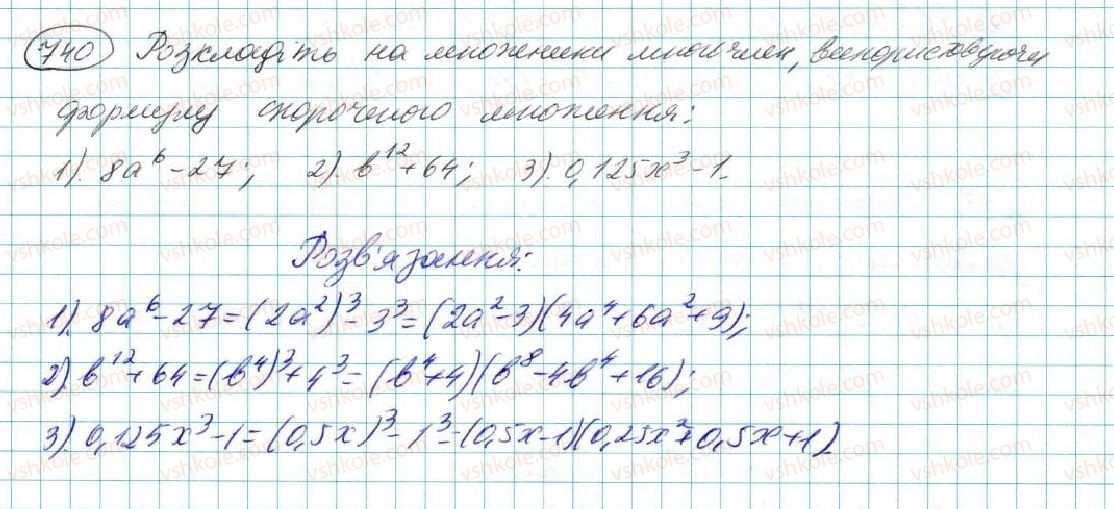 740 Розкладіть на множники многочлен, використовуючи
формулу скороченого множення:
1). 8a⁶-27; 2). b¹²+64; 3). 0,125x³-1.
Розв'язання:
1) 8a⁶-27=(2a²)³-3³=(2a²-3)(4a⁴+6a²+9);
2). b¹²+64=(b⁴)³+4³=(b⁴+4)(b⁸-4b⁴+16);
3). 0,125x³-1=(0,5x)³-1³=(0,5x-1)(0,25x²+0,5x+1).